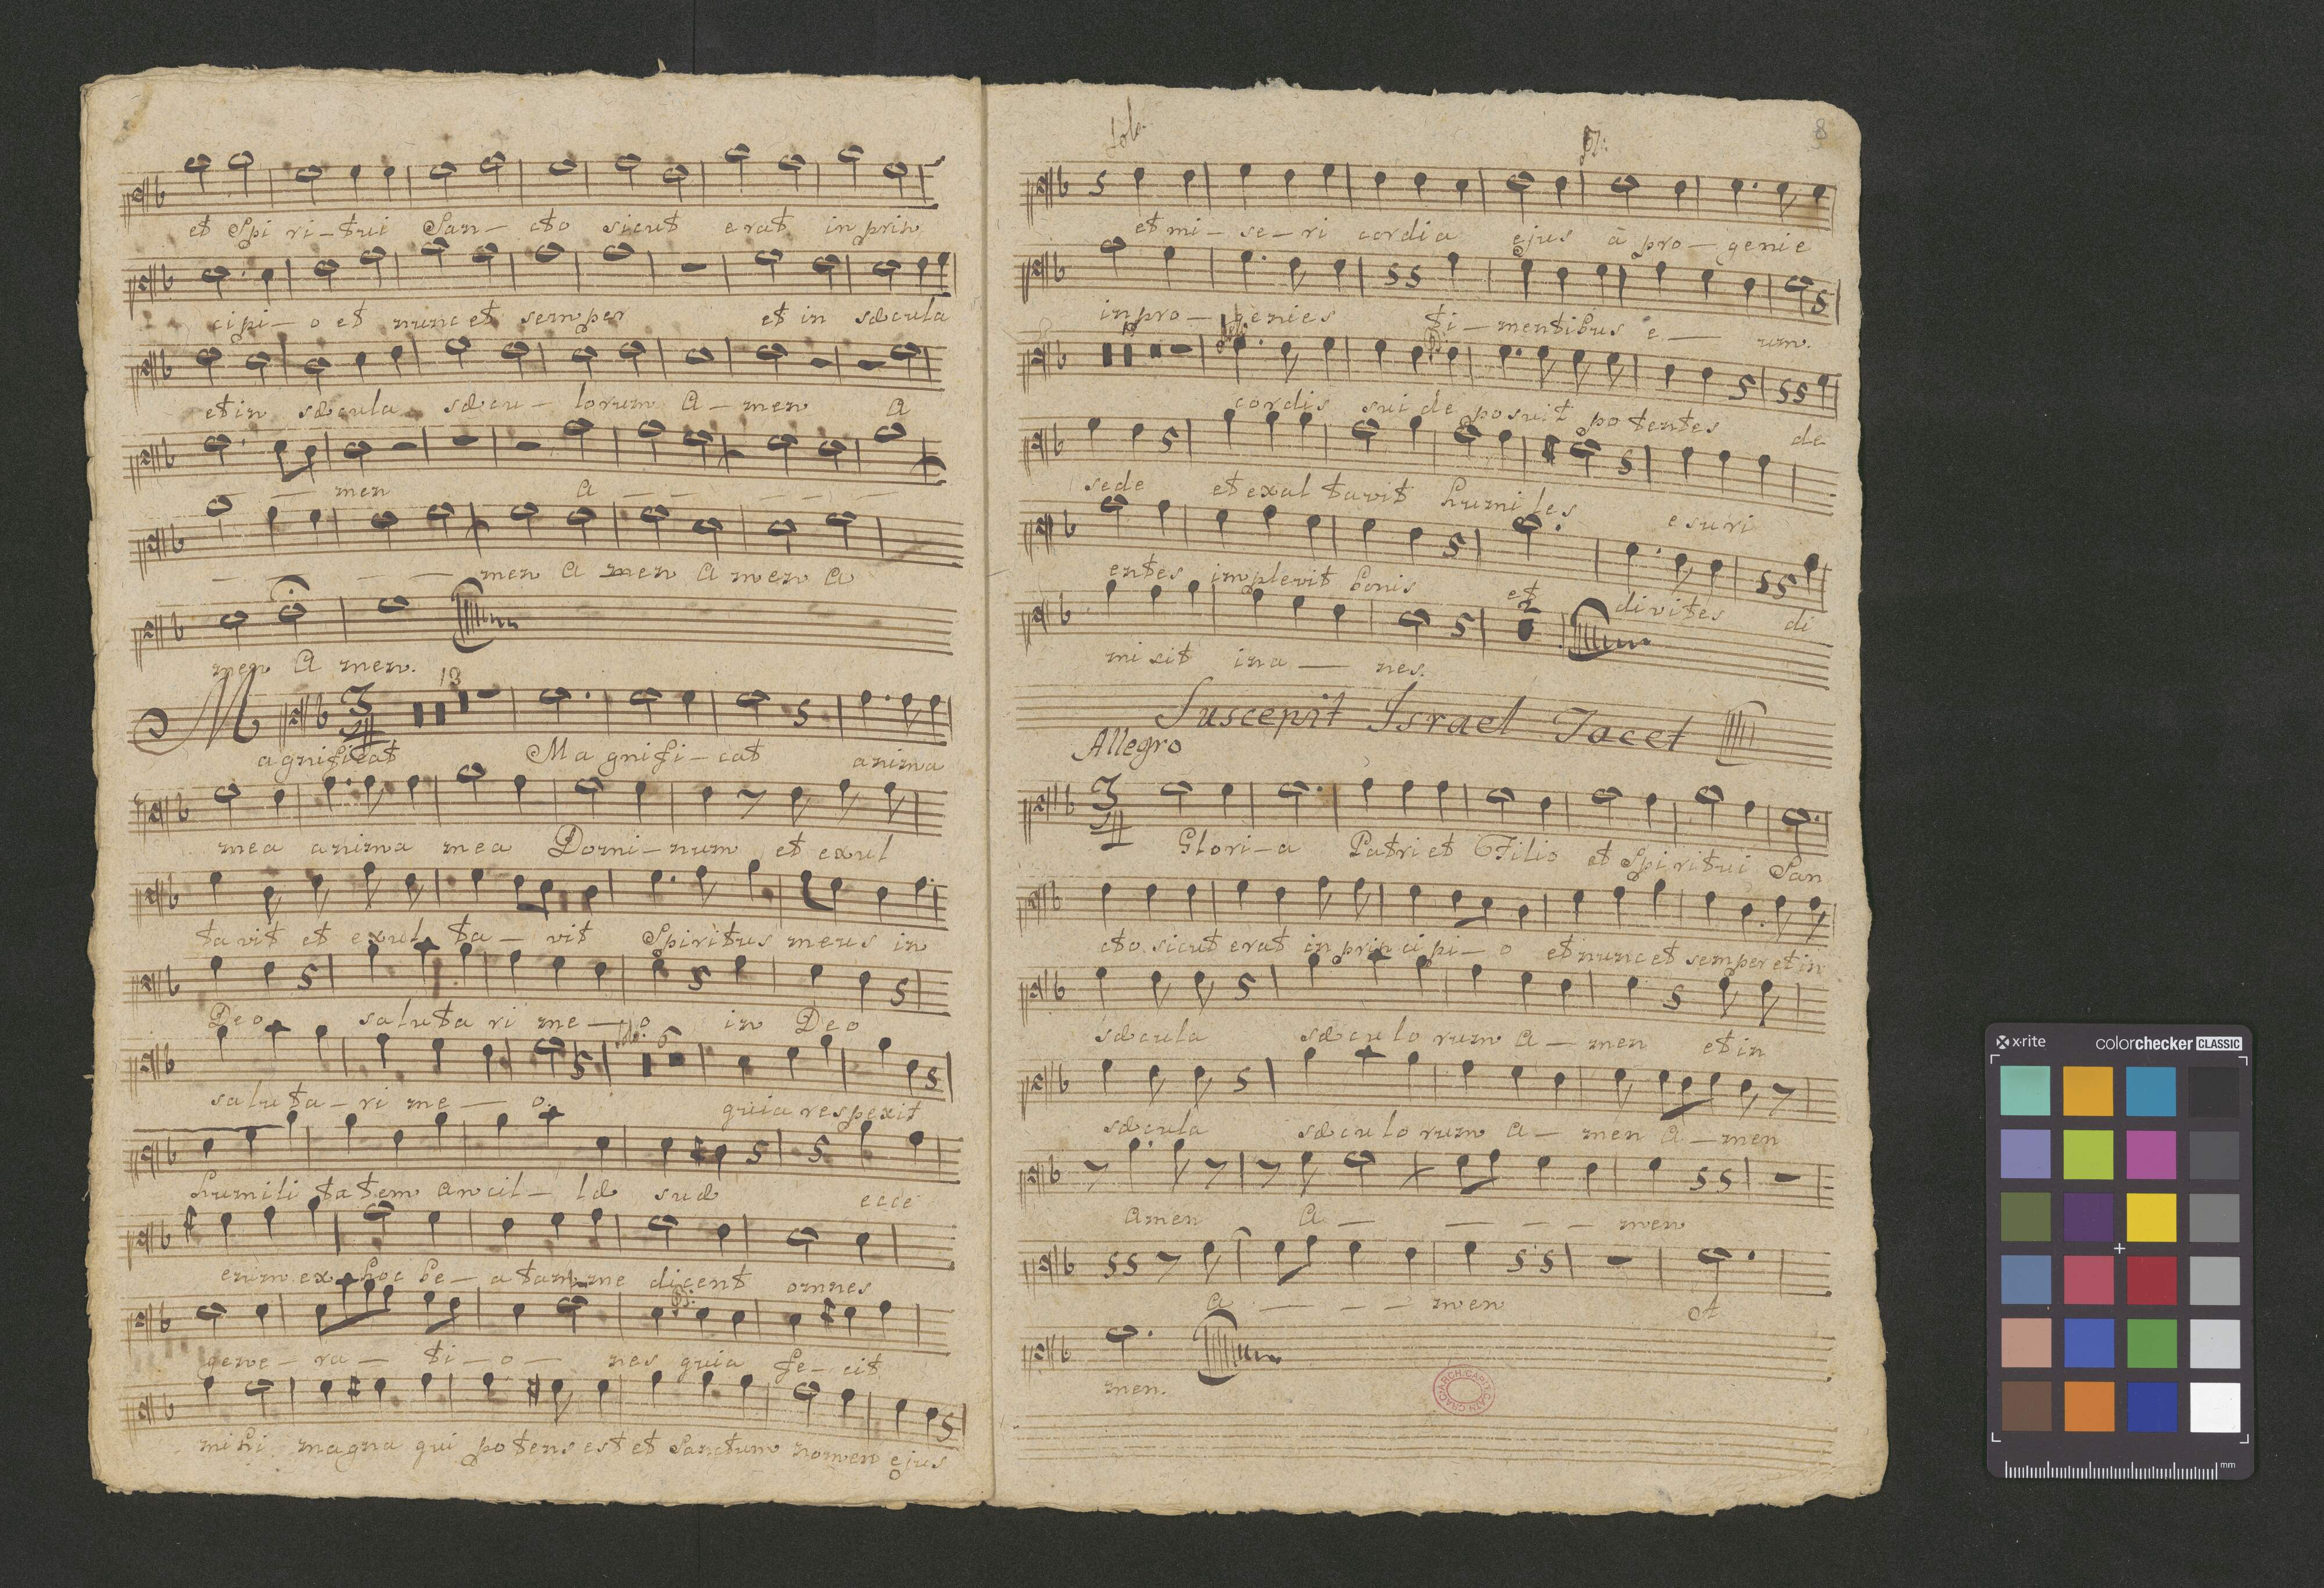 et Spi ri-tui San-cto sicut erat in prin
cipi-o et nunc et semper et in sæcula
et in sæcula sæcu-lorum A-men A
men A
men A men A men A
men A men.
13
Magnificat Magnifi-cat anima
mea anima mea Domi-num et exul
tavit et exul ta-vit Spiritus meus in
Deo saluta ri me-o in Deo
6
saluta-ri me-o. quia respexit
humili tatem ancil-læ suæ ecce
enim ex hoc be-atam me dicent omnes
gene-ra-ti-o-nes quia fe-cit
mihi magna qui potens est et Sanctum nomen ejus
8
et mi-se-ri cordia ejus à pro-genie
in pro-genies ti-mentibus e-um.
cordis sui deposuit potentes de
sede et exal tavit humiles esuri
entes implevit bonis et divites di
2
misit ina-nes.
Suscepit Israel Tacet
Allegro
3
Glori-a Patri et Filio et Spiritui San
cto. sicut erat in principi-o et nunc et semper et in
sæcula sæculo rum A-men et in
sæcula sæculo rum A-men A-men
Amen A - men
A - men A
men.
x-rite colorchecker CLASSIC
mm